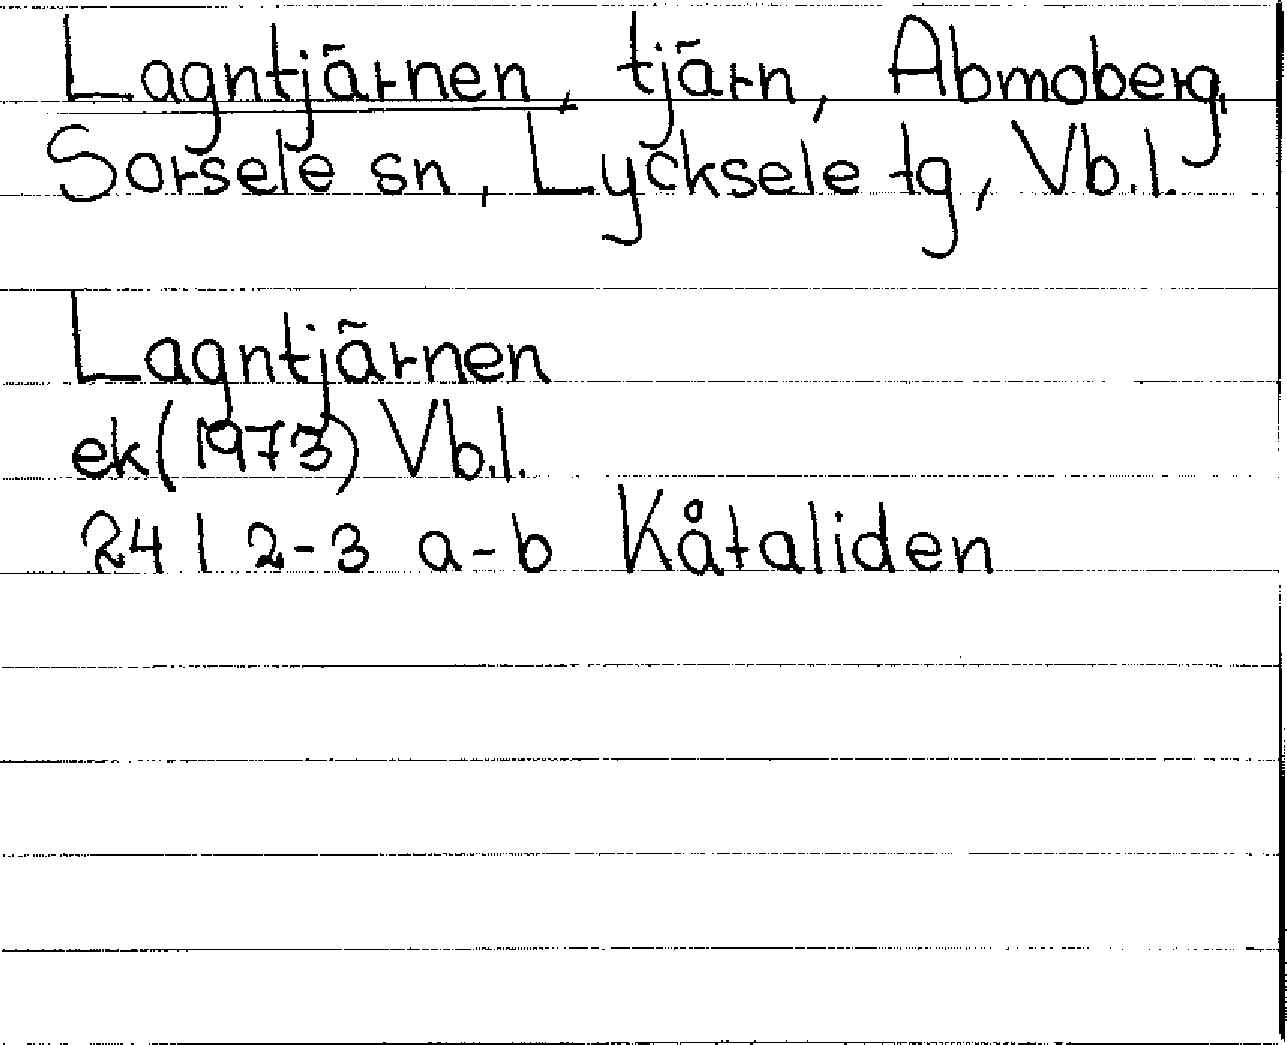 Lagntjärnen, tjärn, Abmoberg,
Sorsele sn, Lycksele tg, Vb.l.
Lagntjärnen
ek (1973) Vb.l.
24 I 2-3 a-b Kåtaliden